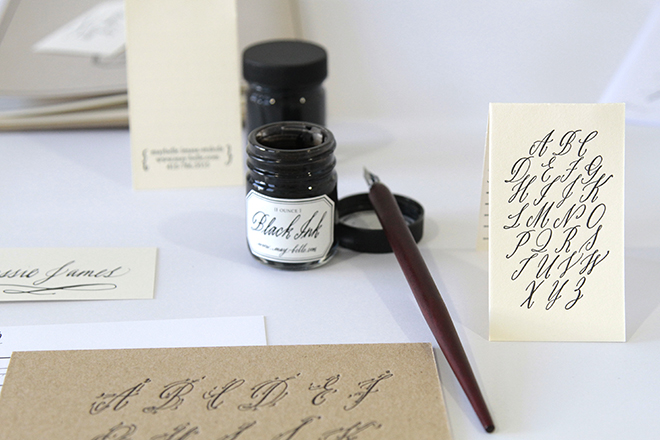 maybelle imasa-stukuls
www.may-belle.com
Black Ink
www.may-belle.com
James
A B C
D E F G
H I J K
L M N O
P Q R S
T U V W
X Y Z
A B C D E F